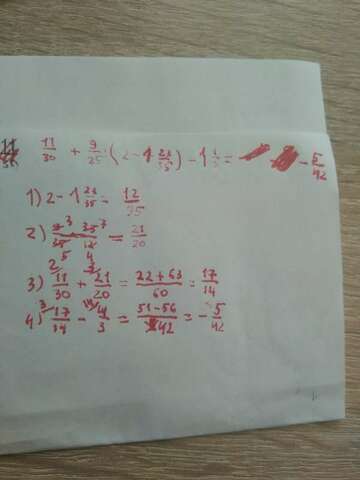 11/30 + 9/25 : (2 - 1 23/35) - 1 1/3 = - 5/42
1) 2 - 1 23/35 = 12/35
2) 9 3 35 7 / 25 5 12 4 = 21/20
3) 2/ 11/30 + 3/ 21/20 = 22+63/60 = 17/14
4) 3/ 17/14 - 14/ 4/3 = 51-56/42 = - 5/42